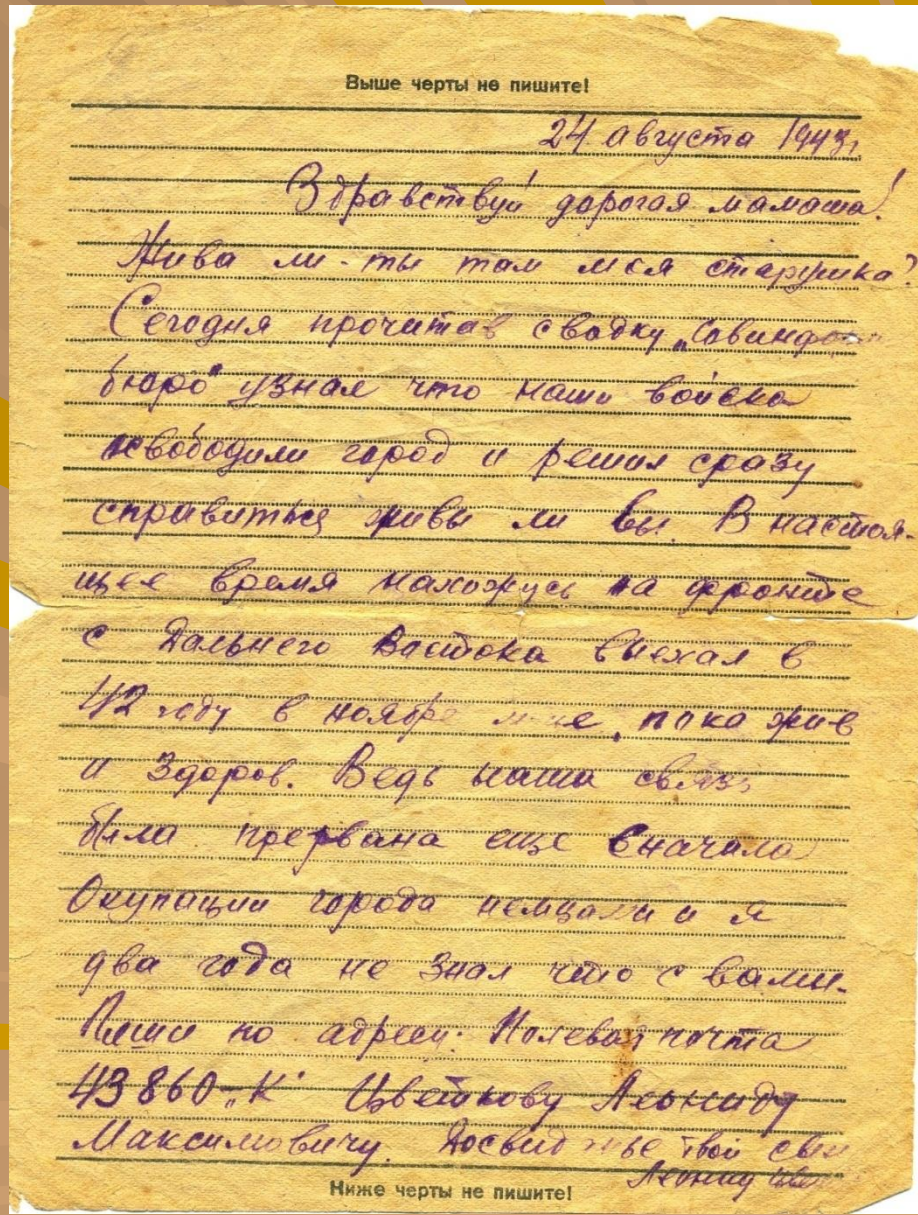 Выше черты не пишите!
24 августа 1943г
Здравствуй дорогая мамаша!
Жива ли-ты там моя старушка?
Сегодня прочитав сводку „Совинформ
бюро" узнал что наши войска
освободили город и решил сразу
справиться живы ли вы. В настоя-
щее время нахожусь на фронте
с Дальнего Востока выехал в
42 году в ноябре пока жив
и здоров. Ведь наша связь
была прервана еще вначала
Окупации города немцами и я
два года не знал что с вами.
Пиши по адресу: Полевая почта
43860 „К" Цветкову Леониду
Максимовичу. Досвиданье твой сын
Леонид
Ниже черты не пишите!